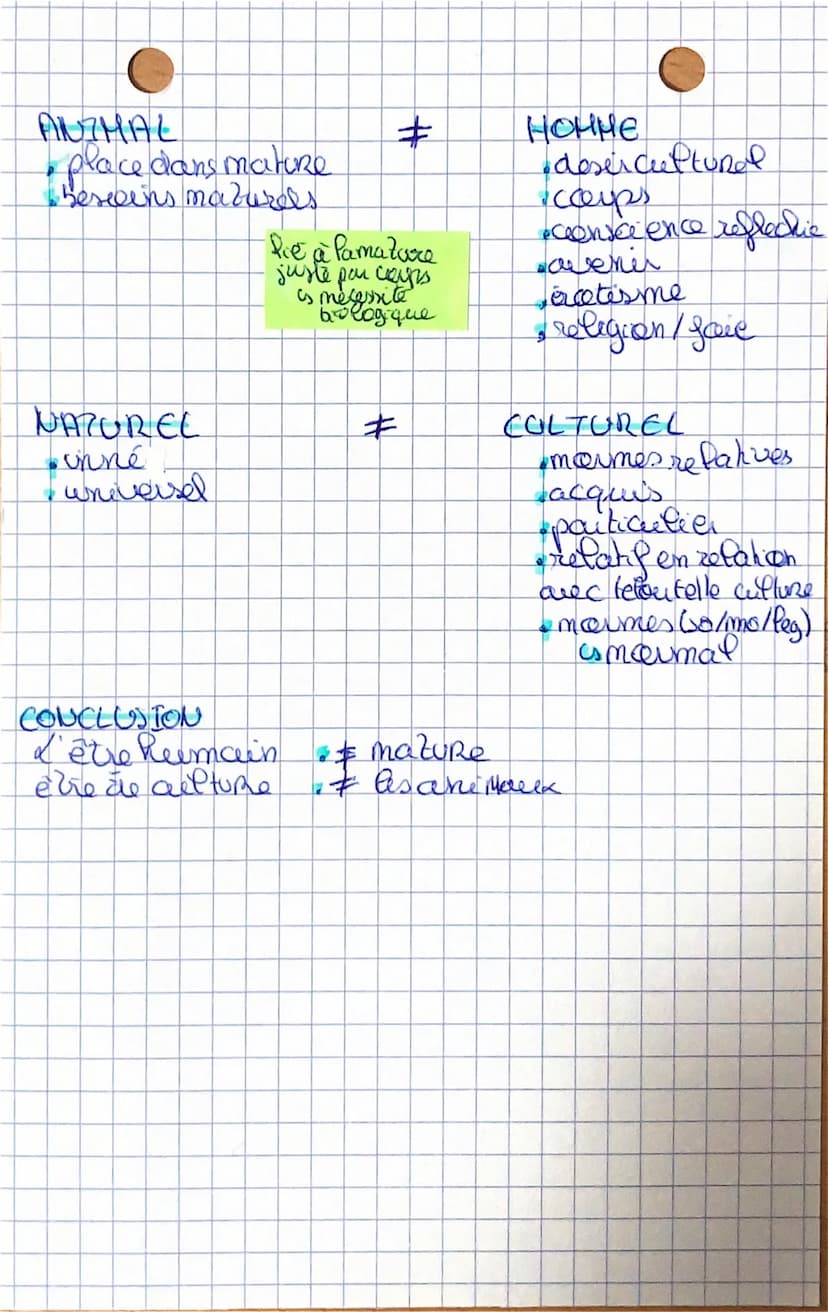 ANIMAL ≠ HOMME
• place dans nature
• besoins naturels
• desir culturel
• corps
• conscience reflechie
• avenir
• érotisme
• religion/foie
lié à la nature
juste par corps
↳ nécessité
biologique
NATUREL ≠ CULTUREL
• inné
• universel
• normes relatives
• acquis
• particulier
• relatif en relation
avec telle ou telle culture
• normes (so/mo/leg)
↳ normal
CONCLUSION
L'être humain • ≠ nature
être de culture • ≠ les animaux